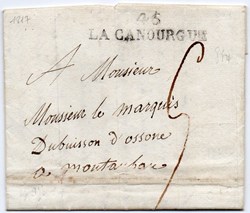 1817
25
LA CANOURGUE
A Monsieur
Monsieur le marquis
Dubuisson d'ossone
a montauban